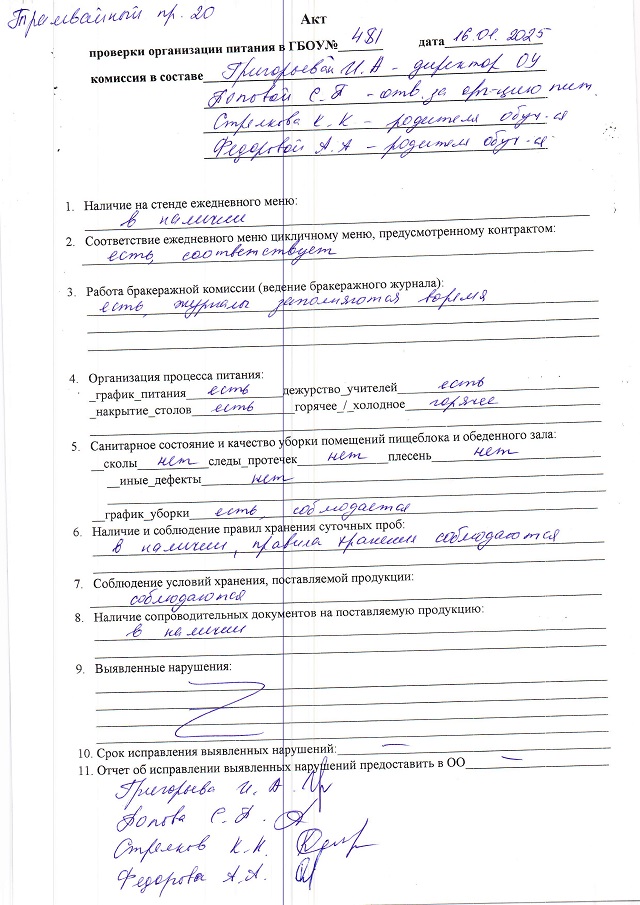 Трамвайный пр. 20
Акт
проверки организации питания в ГБОУ№ 481 дата 16.01.2025
комиссия в составе Григорьевой И.А - директор ОУ
Поповой С.П - отв. за орг-цию пит.
Стрелкова К.К - родителя обуч-ся
Федоровой А.А - родителя обуч-ся
1. Наличие на стенде ежедневного меню:
в наличии
2. Соответствие ежедневного меню цикличному меню, предусмотренному контрактом:
есть, соответствует
3. Работа бракеражной комиссии (ведение бракеражного журнала):
есть, журналы заполняются вовремя
4. Организация процесса питания:
_график_питания есть дежурство_учителей есть
_накрытие_столов есть горячее_/_холодное горячее
5. Санитарное состояние и качество уборки помещений пищеблока и обеденного зала:
__сколы нет следы_протечек нет плесень нет
__иные_дефекты нет
__график_уборки есть, соблюдается
6. Наличие и соблюдение правил хранения суточных проб:
в наличии, правила хранения соблюдаются
7. Соблюдение условий хранения, поставляемой продукции:
соблюдаются
8. Наличие сопроводительных документов на поставляемую продукцию:
в наличии
9. Выявленные нарушения:
10. Срок исправления выявленных нарушений: —
11. Отчет об исправлении выявленных нарушений предоставить в ОО —
Григорьева И. А.
Попова С. П.
Стрелков К. К.
Федорова А. А.